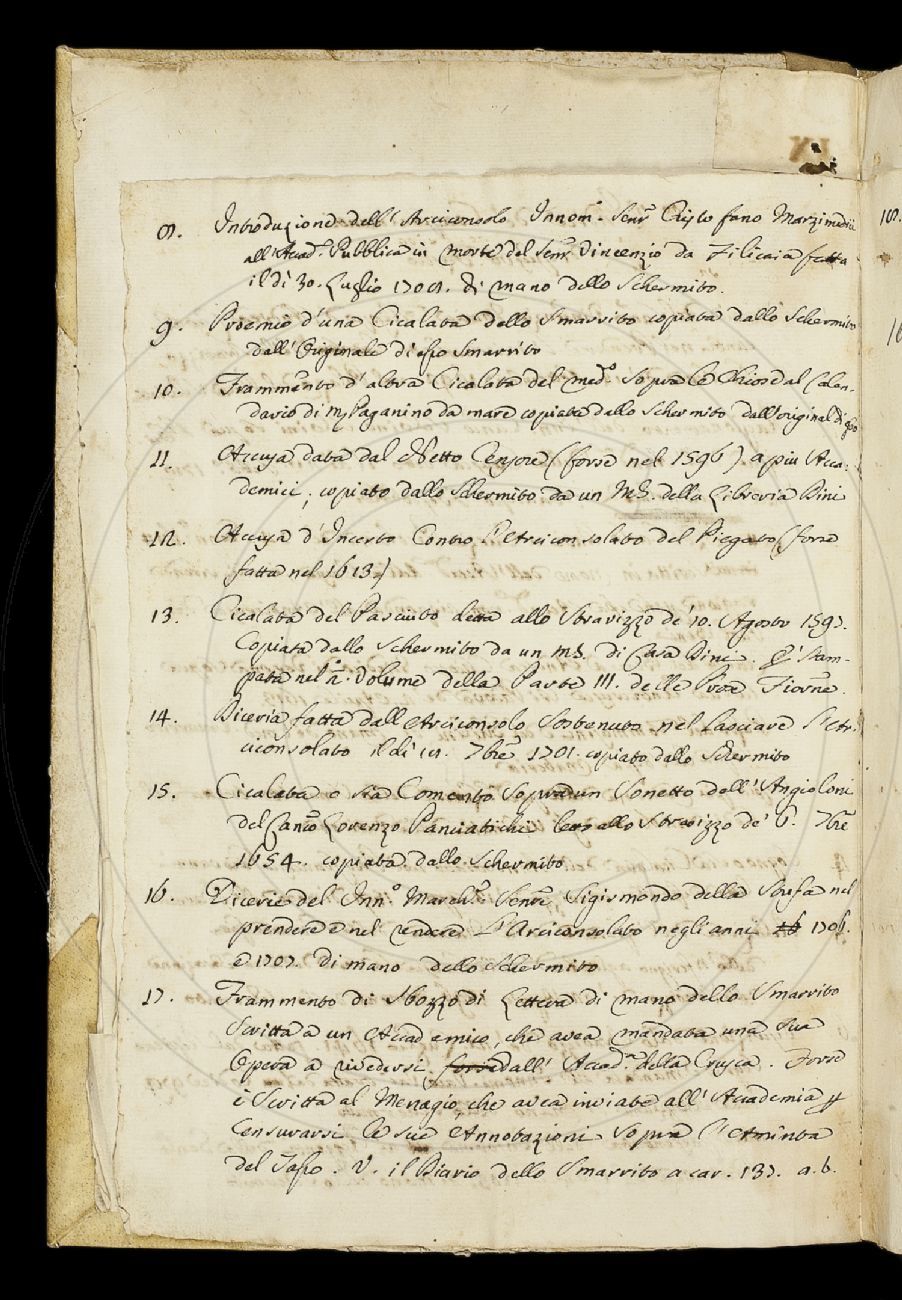 8. Introduzione dell' Arciconsolo Innom.º Senr. Cristofano Marzimedici
all'Accad.ª Pubblica in morte del Senr. Vincenzio da Filicaia fatta
il dì 30. Luglio 1708. di mano dello Schermito.
9. Proemio d'una Cicalata dello Smarrito copiata dallo Schermito
dall'Originale di esso Smarrito
10. Frammento d'altra Cicalata del med.º sopra le Chiose dal Calen-
dario di M Paganino da mare copiata dallo Schermito dall'original di esso
11. Accusa data dal Netto Censore (forse nel 1596) a più Acca-
demici, copiato dallo Schermito da un MS. della Libreria Dini
12. Accusa d'Incerto Contro l'Arciconsolato del Piegato (forse
fatta nel 1613)
13. Cicalata del Pasciuto detta allo Stravizzo de' 10. Agosto 1597.
Copiata dallo Schermito da un MS. di Casa Dini. È Stam-
pata nel Volume della Parte III. delle Prose Fiorne.
14. Diceria fatta dall'Arciconsolo Sostenuto nel lasciare l'Ar-
ciconsolato il dì 7bre 1701. copiato dallo Schermito
15. Cicalata o sia Comento sopra un Sonetto dell'Angioloni
del Canco. Lorenzo Panciatichi letto allo Stravizzo de' 6. 7bre
1654. copiata dallo Schermito
16. Dicerie del Inn.º March.e Senre. Sigismondo della Stufa nel
prendere e nel rendere L'Arciconsolato negli anni 1706.
e 1707. Di mano dello Schermito
17. Frammento di Sbozzo di Lettera di mano dello Smarrito
Scritta a un Accademico, che avea mandata una sua
Opera a rivedersi forse dall' Accad.ª della Crusca. Forse
è Scritta al Menagio, che avea inviate all'Accademia p
Censurarsi le sue Annotazioni sopra l'Aminta
del Tasso. V. il Diario dello Smarrito a car. 137. a.b.